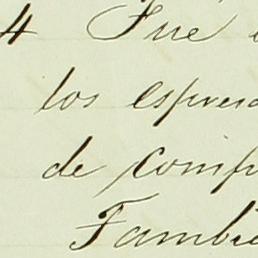 4 Fue
los espresa
de comp
Tambie